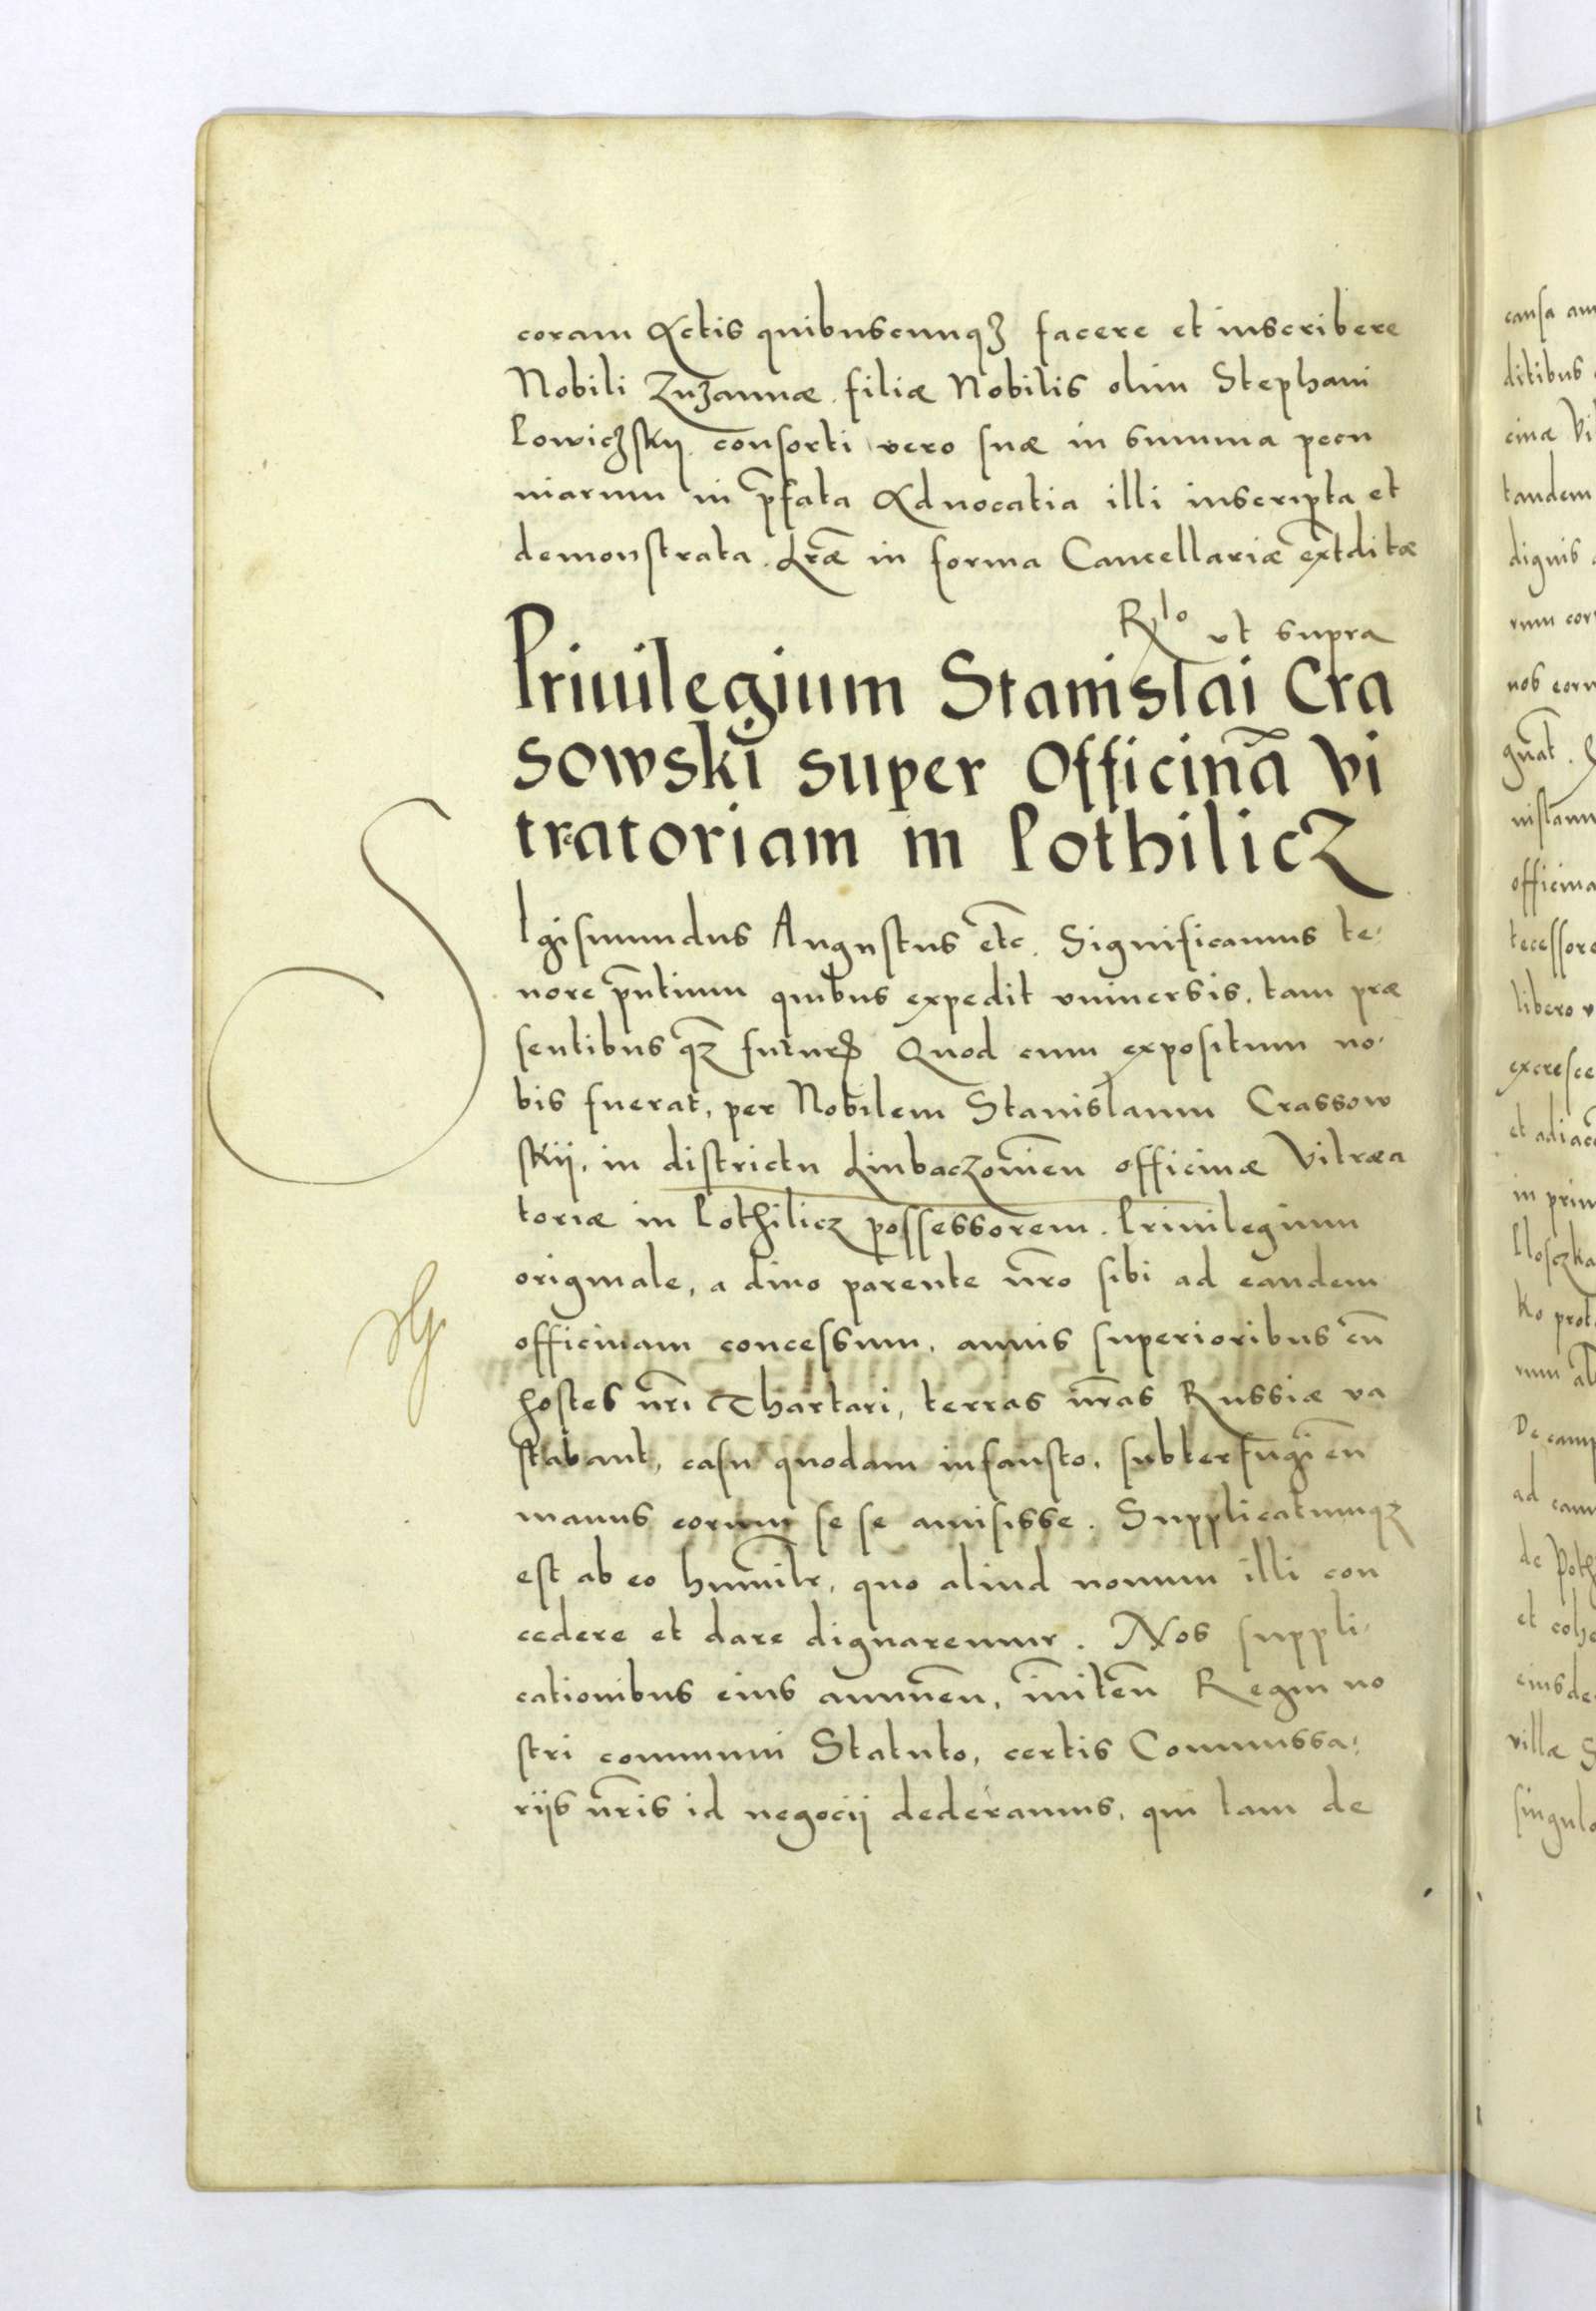 coram Actis quibuscunqꝫ facere et inscribere
Nobili Zuzannæ filiæ Nobilis olim Stephani
Lowiczskÿ consorti vero suæ in summa pecu
niarum in p̄fata Aduocatia illi inscripta et
demonstrata. Lr̄æ in forma Cancellariæ ext̄ditæ
R lo ut supra
Priuilegium Stanislai Cra
sowski super Officinā Vi
tratoriam in Pothilicz
SIgismundus Augustus et̄c. Significamus te-
nore pn̄tium quibus expedit vniuersis, tam præ
sentibus qꝫ futuris Quod cum expositum no-
bis fuerat, per Nobilem Stanislaum Crassow
skÿ, in districtu Lubaczowien̄ officinæ Vitrea
toriæ in Pothilicz possessorem. Priuilegium
originale, a diuo parente nr̄o sibi ad eandem
officinam concessum, annis superioribus cū
hostes nr̄i Thartari, terras nr̄as Russiæ va
stabant, casu quodam infausto, subterfugien̄
manus eorum se se amisisse. Supplicatumqꝫ
est ab eo humilr̄, quo aliud nouum illi con
cedere et dare dignaremur. Nos suppli-
cationibus eius annuen̄, in̄iten̄ Regni no
stri communi Statuto, certis Commissa-
rijs nr̄is id negocij dederamus, qui tam de
causa
ditibus
cinæ Vi
tandem
dignis
rum
nos
officina
tecessor
libero v
excresce
et adiacē
in prim
Ko prot
De camp
ad
de Poth
et cohe
eiusde
villæ S
singulo